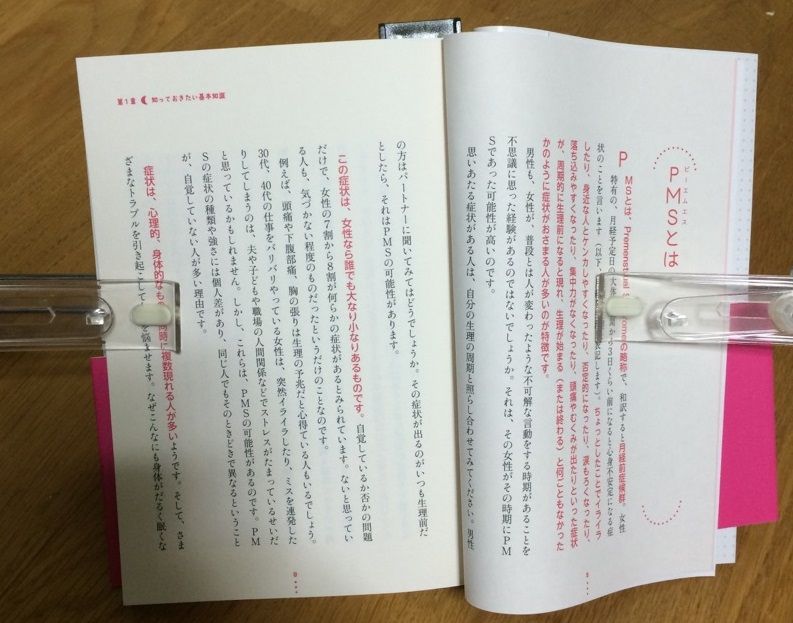 ピー エムエス
PMSとは
PMSとは、Premenstrual Syndromeの略称で、和訳すると月経前症候群。女性
特有の、月経予定日の大体 間から3日くらい前になると心身不安定になる症
状のことを言います(以下、 表記します)。ちょっとしたことでイライラ
したり、身近な人とケンカしやすくなったり、否定的になったり、涙もろくなったり、
落ち込みやすくなったり、集中力がなくなったり、頭痛やむくみが出たりといった症状
が、周期的に生理前になると現れ、生理が始まる(または終わる)と何ごともなかった
かのように症状がおさまる人が多いのが特徴です。
男性も、女性が、普段とは人が変わったような不可解な言動をする時期があることを
不思議に思った経験があるのではないでしょうか。それは、その女性がその時期にPM
Sであった可能性が高いのです。
思いあたる症状がある人は、自分の生理の周期と照らし合わせてみてください。男性
第1章 知っておきたい基本知識
の方はパートナーに聞いてみてはどうでしょうか。その症状が出るのがいつも生理前だ
としたら、それはPMSの可能性があります。
この症状は、女性なら誰でも大なり小なりあるものです。自覚しているか否かの問題
だけで、女性の7割から8割が何らかの症状があるとみられています。ないと思ってい
る人も、気づかない程度のものだったというだけのことなのです。
例えば、頭痛や下腹部痛、胸の張りは生理の予兆だと心得ている人もいるでしょう。
30代、40代の仕事をバリバリやっている女性は、突然イライラしたり、ミスを連発した
りしてしまうのは、夫や子どもや職場の人間関係などでストレスがたまっているせいだ
と思っているかもしれません。しかし、これらは、PMSの可能性があるのです。PM
Sの症状の種類や強さには個人差があり、同じ人でもそのときどきで異なるということ
が、自覚していない人が多い理由です。
症状は、心理的、身体的なも 同時に複数現れる人が多いようです。そして、さま
ざまなトラブルを引き起こして を悩ませます。なぜこんなにも身体がだるく眠くな